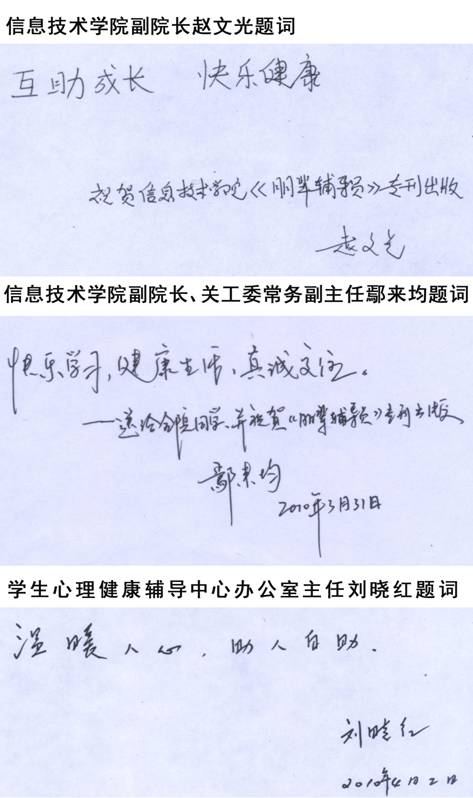 信息技术学院副院长赵文光题词
互助成长 快乐健康
祝贺信息技术学院《朋辈辅导员》专刊出版
赵文光
信息技术学院副院长、关工委常务副主任鄢来均题词
快乐学习，健康生活，真诚交往。
——送给全院同学、并祝贺《朋辈辅导员》专刊出版
鄢来均
2010年3月31日
学生心理健康辅导中心办公室主任刘晓红题词
温暖人心，助人自助．
刘晓红
2010年4月2日